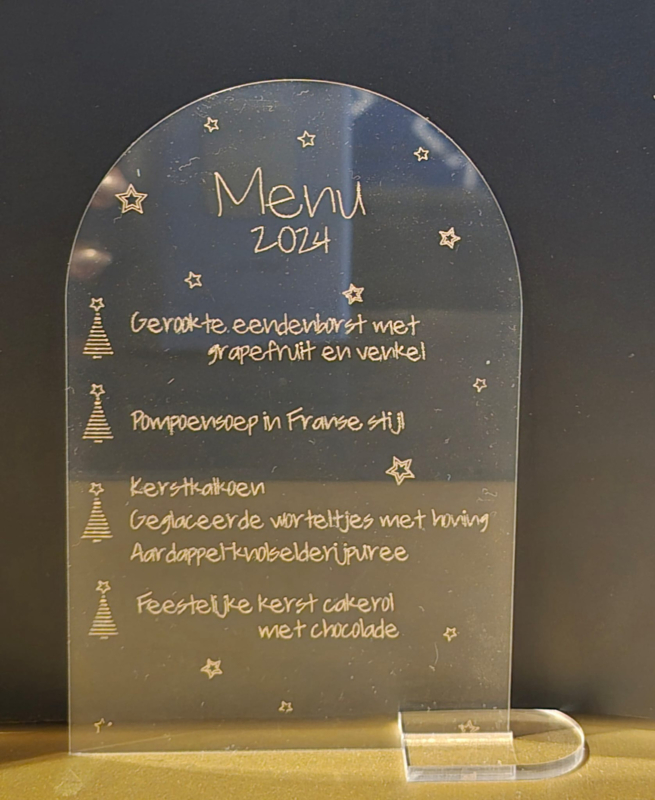 Menu
2024
Gerookte eendenborst met
grapefruit en venkel
Pompoensoep in Franse stijl
Kerstkalkoen
Geglaceerde worteltjes met honing
Aardappel-knolselderijpuree
Feestelijke kerst cakerol
met chocolade